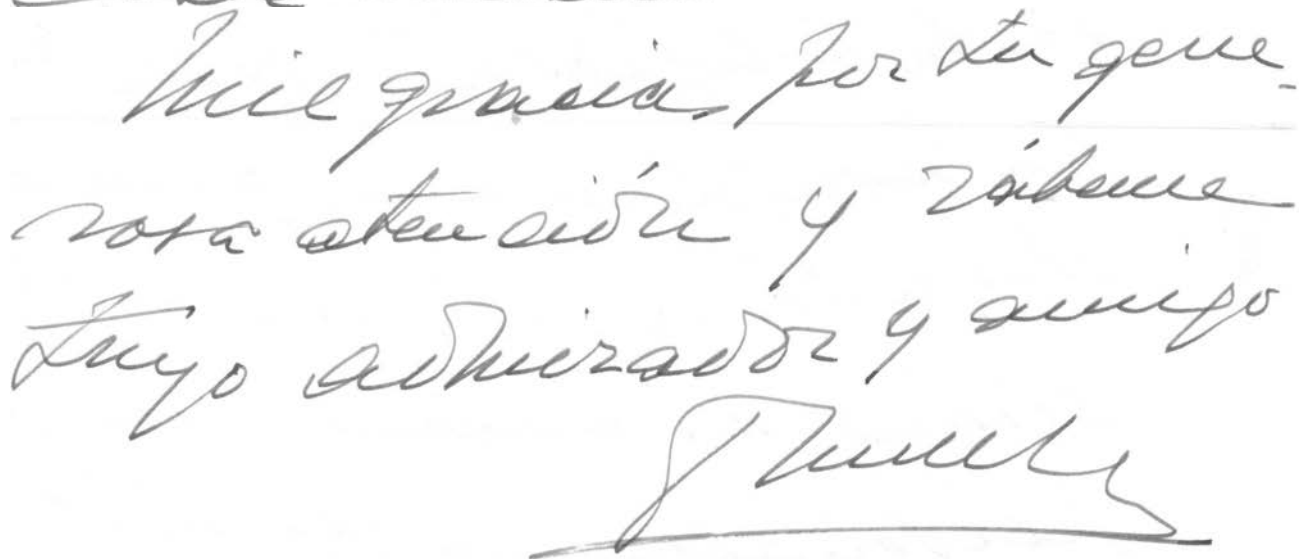 Mil gracias por tu gene-
rosa atención y sábeme
tuyo admirador y amigo